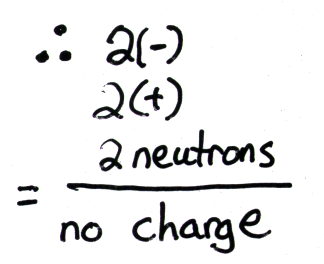 ∴ 2(-)
2(+)
2 neutrons
=
no charge